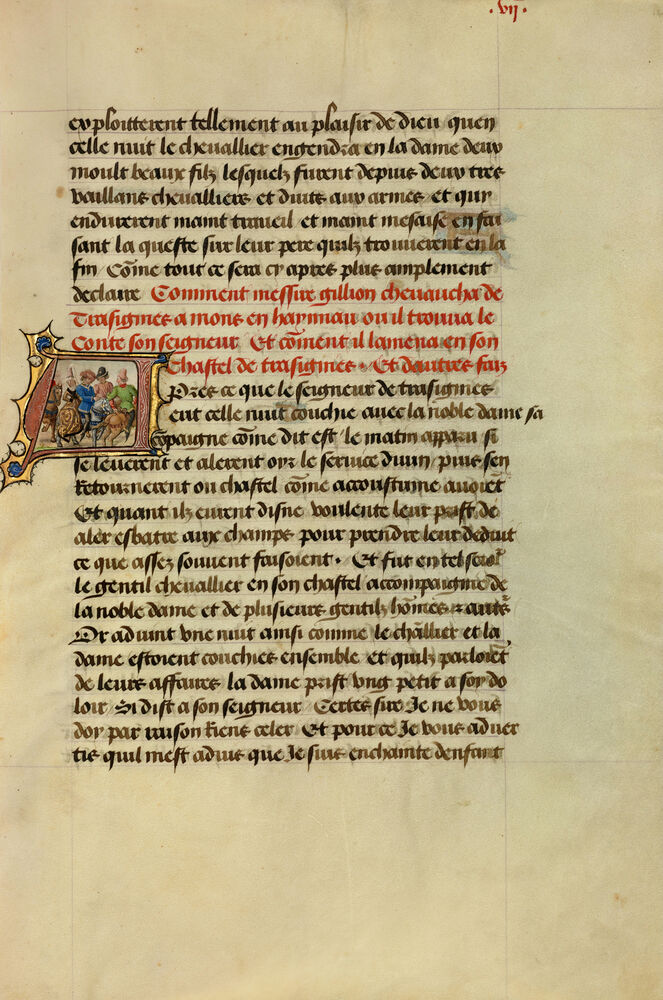 .vij.
exploitterent tellement au plaisir de dieu quen
celle nuit le chevallier engendra en la dame deux
moult beaux filz lesquelz furent depuis deux tres
vaillans chevalliers et duits aux armes et quy
endurerent maint traveil et maint mesaise en fai
sant la queste sur leur pere quilz trouverent en la
fin / Cōme tout ce sera cy apres plus amplement
declaire Comment messire gillion chevaucha de
Trasignies a mons en haynnau ou il trouva le
Conte son seigneur / Et cōment il lamena en son
Chastel de trasignies . Et dautres faiz
Apres ce que le seigneur de trasignies
eut celle nuit couchie avec la noble dame sa
cōpaigne cōme dit est / le matin apparu si
se leverent et alerent oyr le service divin / puis sen
Retournerent ou chastel cōme accoustume avoiēt
Et quant ilz eurent disne voulente leur prist de
aler esbatre aux champs pour prendre leur deduit
ce que assez souvent faisoient . Et fut en tel
le gentil chevallier en son chastel accompaignie de
la noble dame et de plusieurs gentilz hōmes
Or advint une nuit ainsi comme le chlłier et la
dame estoient couchies ensemble et quilz parloiēt
de leurs affaires la dame prist ung petit a soy do
loir / Si dist a son seigneur / Certes sire Je ne vous
doy par raison Riens celer / Et pour ce Je vous adver
tis quil mest advis que Je suis enchainte denfant